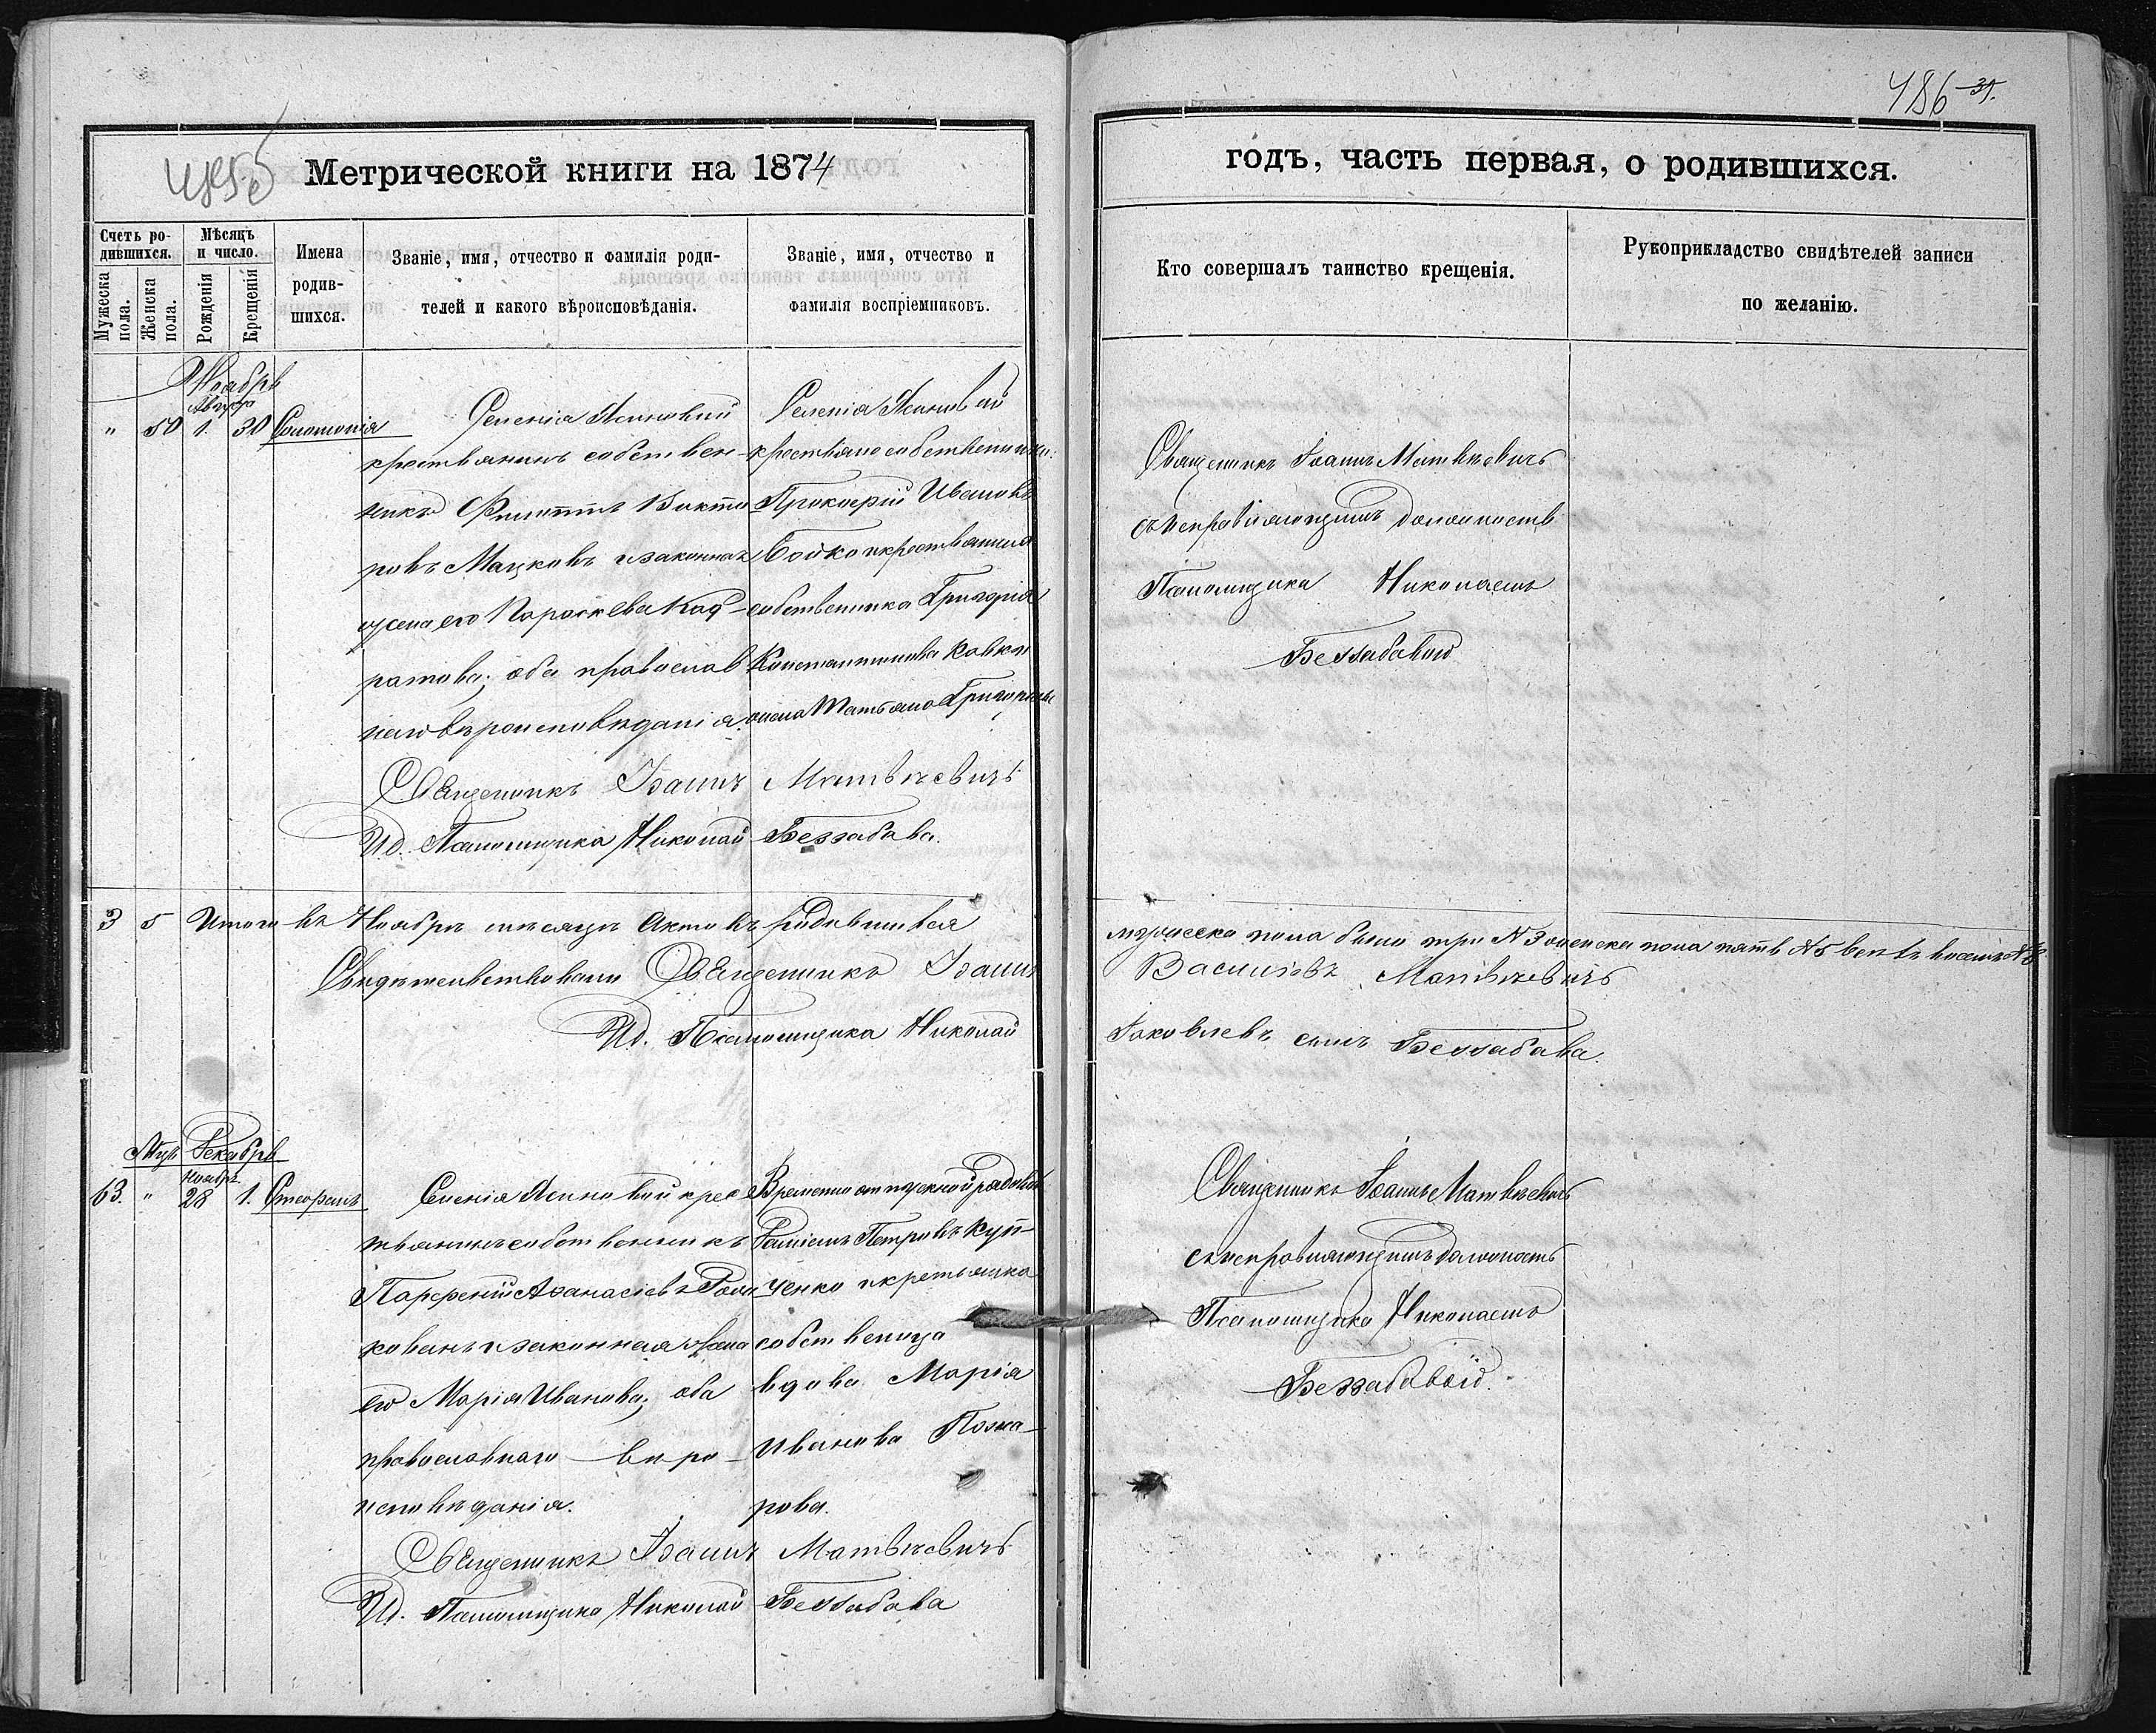 486 31.
485б
Метрической книги на 1874
годъ, часть первая, о родившихся.
Счетъ родившихся.
Мужеска пола.
Женска пола.
Мѣсяцъ и число.
Рожденія
Крещенія
Имена родившихся.
Званіе, имя, отчество и фамилія родителей и какого вѣроисповѣданія.
Званіе, имя, отчество и фамилія воспріемниковъ.
Кто совершалъ таинство крещенія.
Рукоприкладство свидѣтелей записи по желанію.
Ноябрь
" 50 1. 30 Соломонія
Селенія Ясиновки
крестьянинъ собствен-
никъ Филиппъ Викто
ровъ Мацковъ и законная
жена его Параскева Код-
ратова; оба православ
наго вѣроисповѣданія.
Селенія Ясиновки
крестьяне собственники:
Прокофій Ивановъ
Бойко и крестьянина
собственника Григорія
Константинова
жена Татьяна Григорьева
Священникъ Іоаннъ Матвѣевичъ
Ид. Псаломщика Николай Беззабава.
Священникъ Іоаннъ Матвѣевичъ
съ исправляющимъ должность
Псаломщика Николаемъ
Беззабавой
3 5 Итого въ Ноябрѣ мѣсяцѣ актовъ родившихся
мужеска пола было три №3 женска пола пять №5 всѣхъ восемь №8
Свидѣтельствовали Священникъ Іоаннъ
Васильевъ Матвѣевичъ
Ид. Псаломщика Николай
Іаковлевъ сынъ Беззабава.
Мцъ Декабрь
Ноябр.
63. " 28 1. Стефанъ
Селенія Ясиновки крес
тьянинъ собственникъ
Парфеній Аѳанасіевъ
и законная жена
его Марія Иванова; оба
православнаго вѣро-
исповѣданія.
Временно отпускной рядовой
Петровъ Куп-
ченко и крестьянка
собственица
вдова Марія
Иванова Пона-
рова.
Священникъ Іоаннъ Матвѣевичъ
Ид. Псаломщика Николай Беззабава
Священникъ Іоаннъ Матвѣевичъ
съ исправляющимъ должность
Псаломщика Николаемъ
Беззабавой.